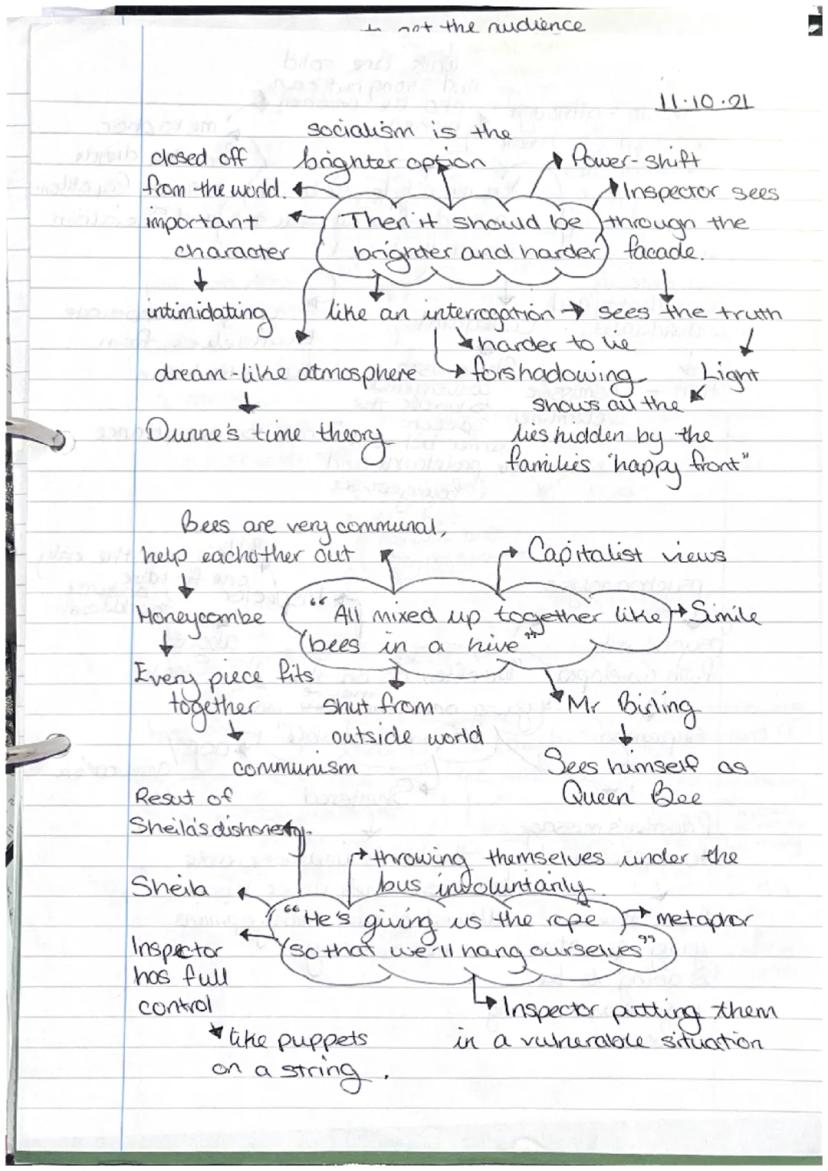 the audience
11.10.21
socialism is the
brighter option
closed off
from the world.
Power-shift
Inspector sees
through the
facade.
important
character
Then it should be
brighter and harder
intimidating
like an interrogation → sees the truth
harder to lie
forshadowing
Light
shows all the
lies hidden by the
families "happy front"
dream-like atmosphere
Dunne's time theory
Bees are very communal,
help eachother out
Capitalist views
Honeycombe
"All mixed up together like
bees in a hive"
Simile
Every piece fits
together
communism
shut from
outside world
Mr Birling
Sees himself as
Queen Bee
Resut of
Sheila's dishonesty.
throwing themselves under the
bus involuntarily.
Sheila
"He's giving us the rope
so that we'll hang ourselves"
metaphor
Inspector
has full
control
like puppets
on a string.
Inspector putting them
in a vulnerable situation